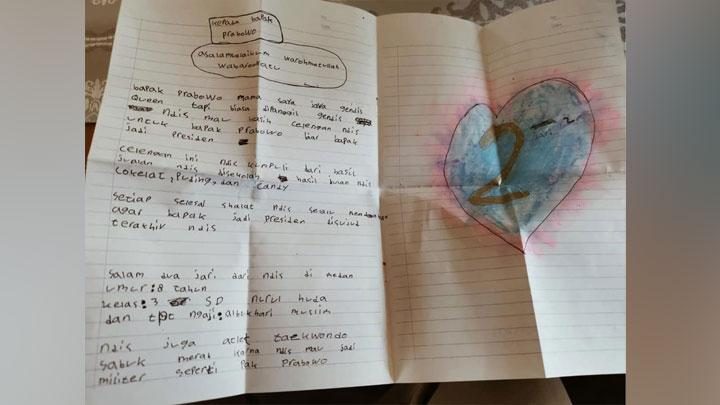 kepada bapak
Prabowo
asalamualaikum warohmatullah
wabarokatu
bapak Prabowo nama saya java gendis
Queen tapi biasa dipanggil gendis
ndis mau kasih celengan ndis
untuk bapak Prabowo biar bapak
jadi presiden
celengan ini ndis kumpuli dari hasil
jualan ndis disekolah hasil jualan ndis
Cokelat, puding, dan candy
Setiap selesai shalat ndis selalu mendoakan
agar bapak jadi presiden disujud
terakhir ndis
Salam dua jari dari ndis di medan
umur:8 tahun
kelas:3 SD nurul huda
dan tpt ngaji:albukhari muslim
ndis juga atlet taekwondo
sabuk merah karna ndis mau jadi
militer seperti pak Prabowo
2